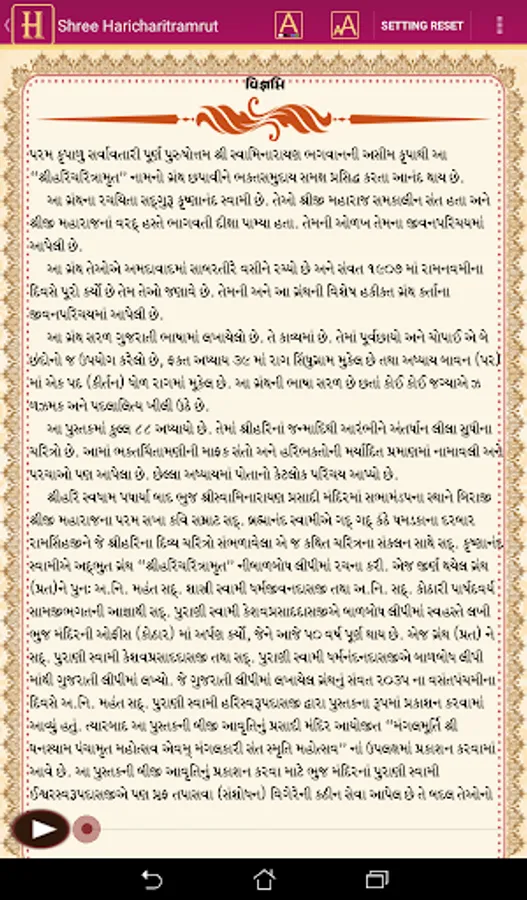 H Shree Haricharitramrut A AA SETTING RESET
વિજ્ઞપ્તિ
પરમ કૃપાળુ સર્વાવતારી પૂર્ણ પુરુષોત્તમ શ્રી સ્વામિનારાયણ ભગવાનની અસીમ કૃપાથી આ
“શ્રીહરિચરિત્રામૃત” નામનો ગ્રંથ છપાવીને ભક્તસમુદાય સમક્ષ પ્રસિદ્ધ કરતા આનંદ થાય છે.
આ ગ્રંથના રચયિતા સદ્‌ગુરૂ કૃષ્ણાનંદ સ્વામી છે. તેઓ શ્રીજી મહારાજ સમકાલીન સંત હતા અને
શ્રીજી મહારાજનાં વરદ્ હસ્તે ભાગવતી દીક્ષા પામ્યા હતા. તેમની ઓળખ તેમના જીવનપરિચયમાં
આપેલી છે.
આ ગ્રંથ તેઓએ અમદાવાદમાં સાબરતીરે વસીને રચ્યો છે અને સંવત ૧૯૦૭ માં રામનવમીના
દિવસે પૂરો કર્યો છે તેમ તેઓ જણાવે છે. તેમની અને આ ગ્રંથની વિશેષ હકીકત ગ્રંથ કર્તાના
જીવનપરિચયમાં આપેલી છે.
આ ગ્રંથ સરળ ગુજરાતી ભાષામાં લખાયેલો છે. તે કાવ્યમાં છે. તેમાં પૂર્વછાયો અને ચોપાઈ એ બે
છંદોનો જ ઉપયોગ કરેલો છે, ફક્ત અધ્યાય ૩૯ માં રાગ સિંધુગ્રામ મુકેલ છે તથા અધ્યાય બાવન (૫૨)
માં એક પદ (કીર્તન) ધોળ રાગમાં મુકેલ છે. આ ગ્રંથની ભાષા સરળ છે છતાં કોઈ કોઈ જગ્યાએ ઝ
ળઝમક અને પદલાલિત્ય ખીલી ઉઠે છે.
આ પુસ્તકમાં કુલ્લ ૮૮ અધ્યાયો છે. તેમાં શ્રીહરિનાં જન્માદિથી આરંભીને અંતર્ધાન લીલા સુધીના
ચરિત્રો છે. આમાં ભક્તચિંતામણીની માફક સંતો અને હરિભક્તોની મર્યાદિત પ્રમાણમાં નામાવલી અને
પરચાઓ પણ આપેલા છે. છેલ્લા અધ્યાયમાં પોતાનો કેટલોક પરિચય આપ્યો છે.
શ્રીહરિ સ્વધામ પધાર્યા બાદ ભુજ શ્રીસ્વામિનારાયણ પ્રસાદી મંદિરમાં સભામંડપના સ્થાને બિરાજી
શ્રીજી મહારાજના પરમ સખા કવિ સમ્રાટ સદ્. બ્રહ્માનંદ સ્વામીએ ગદ્ ગદ્ કંઠે ધમડકાના દરબાર
રામસિંહજીને જે શ્રીહરિના દિવ્ય ચરિત્રો સંભળાવેલા એ જ કથિત ચરિત્રના સંકલન સાથે સદ્. કૃષ્ણાનંદ
સ્વામીએ અદ્ભુત ગ્રંથ “શ્રીહરિચરિત્રામૃત” નીબાળબોધ લીપીમાં રચના કરી. એજ જીર્ણ થયેલ ગ્રંથ
(પ્રત)ને પુનઃ અ.નિ. મહંત સદ્. શાસ્ત્રી સ્વામી ધર્મજીવનદાસજી તથા અ.નિ. સદ્. કોઠારી પાર્ષદવર્ય
સામજીભગતની આજ્ઞાથી સદ્. પુરાણી સ્વામી કેશવપ્રસાદદાસજીએ બાળબોધ લીપીમાં સ્વહસ્તે લખી
ભુજ મંદિરની ઓફીસ (કોઠાર) માં અર્પણ કર્યો, જેને આજે ૫૦ વર્ષ પૂર્ણ થાય છે. એજ ગ્રંથ (પ્રત) ને
સદ્. પુરાણી સ્વામી કેશવપ્રસાદદાસજી તથા સદ્. પુરાણી સ્વામી ધર્મનંદનદાસજીએ બાળબોધ લીપી
માંથી ગુજરાતી લીપીમાં લખ્યો. જે ગુજરાતી લીપીમાં લખાયેલ ગ્રંથનું સંવત ૨૦૩૫ ના વસંતપંચમીના
દિવસે અ.નિ. મહંત સદ્. પુરાણી સ્વામી હરિસ્વરૂપદાસજી દ્વારા પુસ્તકના રૂપમાં પ્રકાશન કરવામાં
આવ્યું હતું. ત્યારબાદ આ પુસ્તકની બીજી આવૃતિનું પ્રસાદી મંદિર આયોજીત “મંગલમૂર્તિ શ્રી
ઘનશ્યામ પંચામૃત મહોત્સવ એવમ્ મંગલકારી સંત સ્મૃતિ મહોત્સવ” નાં ઉપલક્ષમાં પ્રકાશન કરવામાં
આવે છે. આ પુસ્તકની બીજી આવૃતિનું પ્રકાશન કરવા માટે ભુજ મંદિરનાં પુરાણી સ્વામી
ઈશ્વરસ્વરૂપદાસજીએ પણ પ્રુફ તપાસવા (સંશોધન) વિગેરેની કઠીન સેવા આપેલ છે તે બદલ તેઓનો